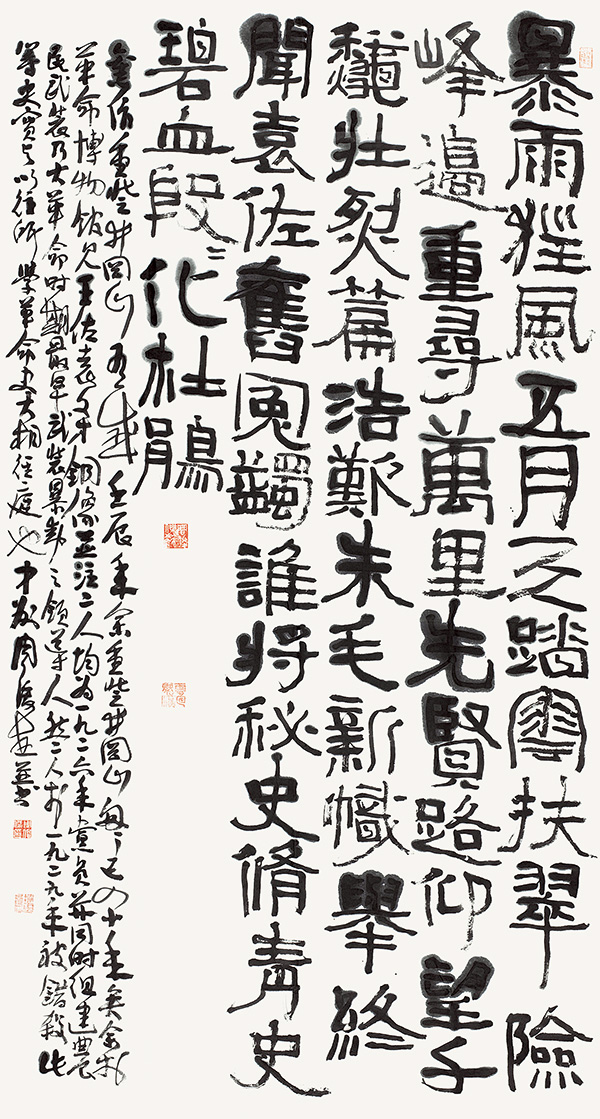 暴雨狂風五月天踏雲扶翠險
峰邊重尋萬里先賢路仰望千
龝壯烈篇浩歎朱毛新幟舉終
聞袁佐舊冤蠲誰將秘史脩青史
碧血段〻化杜鵑
重登井岡山有感 壬辰年余重登井岡山已四十年矣余於
革命博物館見王佐袁文才銅像並注二人均為一九二六年黨員并同時組建農
民武裝乃大革命時期最早武裝暴動之領導人然二人於一九二九年被錯殺此
等史實與以往所學革命史大相徑庭也 周俊杰并書